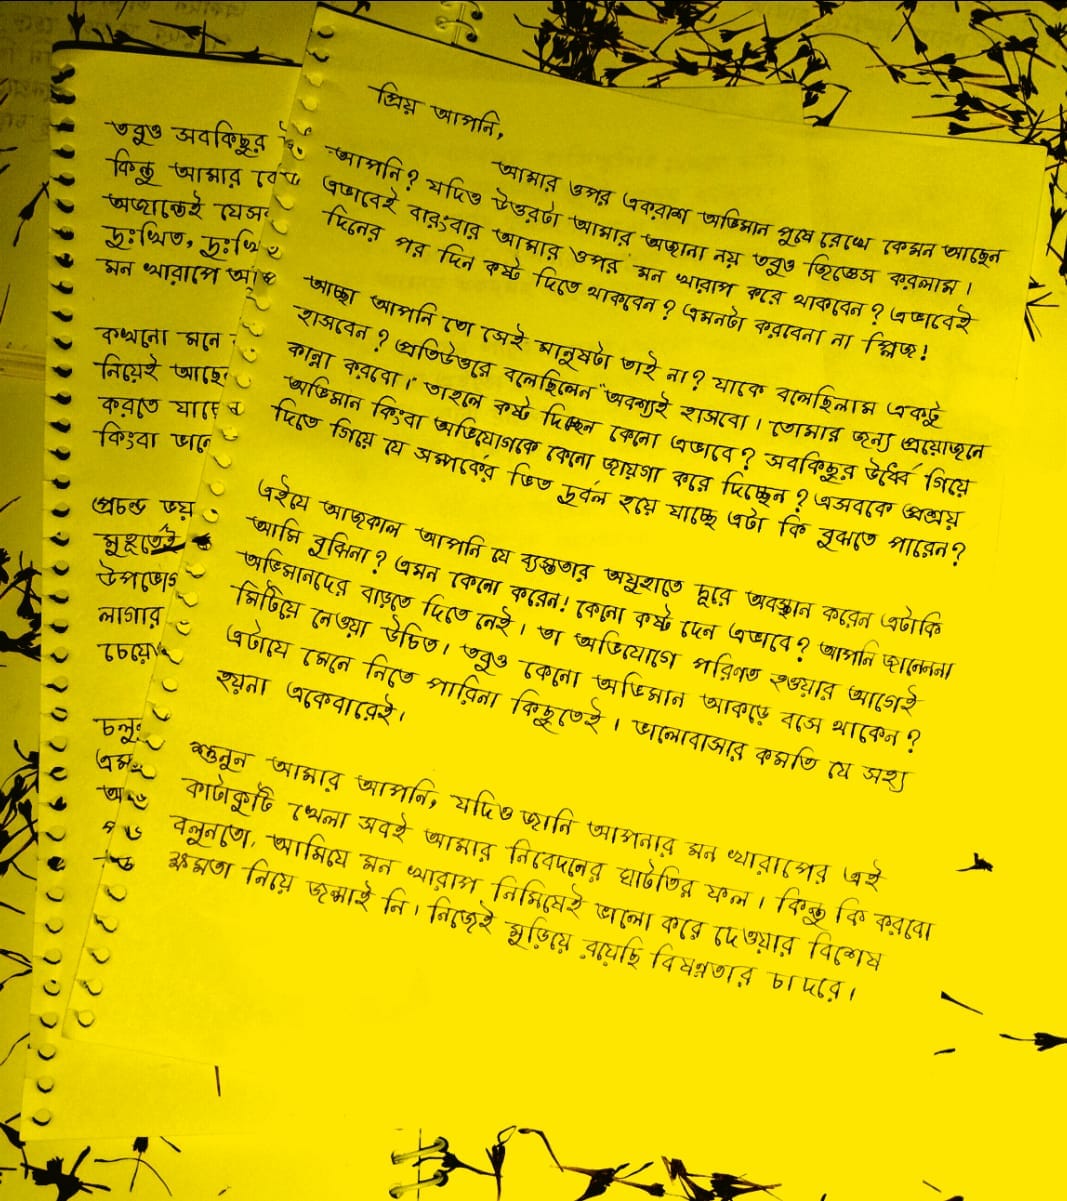 প্রিয় আপনি,
আমার ওপর একরাশ অভিমান পুষে রেখে কেমন আছেন
আপনি? যদিও উত্তরটা আমার অজানা নয় তবুও জিজ্ঞেস করলাম।
এভাবেই বারংবার আমার ওপর মন খারাপ করে থাকবেন? এভাবেই
দিনের পর দিন কষ্ট দিতে থাকবেন? এমনটা করবেনা না প্লিজ!
আচ্ছা আপনি তো সেই মানুষটা তাই না? যাকে বলেছিলাম একটু
হাসবেন? প্রতিউত্তরে বলেছিলেন "অবশ্যই হাসবো। তোমার জন্য প্রয়োজনে
কান্না করবো।" তাহলে কষ্ট দিচ্ছেন কেনো এভাবে? সবকিছুর উর্ধ্বে গিয়ে
অভিমান কিংবা অভিযোগকে কেনো জায়গা করে দিচ্ছেন? এসবকে প্রশ্রয়
দিতে গিয়ে যে সম্পর্কের ভিত দুর্বল হয়ে যাচ্ছে এটা কি বুঝতে পারেন?
এইযে আজকাল আপনি যে ব্যস্ততার অযুহাতে দূরে অবস্থান করেন এটাকি
আমি বুঝিনা? এমন কেনো করেন! কেনো কষ্ট দেন এভাবে? আপনি জানেননা
অভিমানদের বাড়তে দিতে নেই। তা অভিযোগে পরিণত হওয়ার আগেই
মিটিয়ে নেওয়া উচিত। তবুও কেনো অভিমান আকড়ে বসে থাকেন?
এটাযে মেনে নিতে পারিনা কিছুতেই। ভালোবাসার কমতি যে সহ্য
হয়না একেবারেই।
শুনুন আমার আপনি, যদিও জানি আপনার মন খারাপের এই
কাটাকুটি খেলা সবই আমার নিবেদনের ঘাটতির ফল। কিন্তু কি করবো
বলুনতো, আমিযে মন খারাপ নিমিষেই ভালো করে দেওয়ার বিশেষ
ক্ষমতা নিয়ে জন্মাই নি। নিজেই মুড়িয়ে রয়েছি বিষন্নতার চাদরে।
তবুও সবকিছুর
কিন্তু আমার
অজান্তেই
দুঃখিত,
মন খারাপে
কখনো মনে
নিয়েই
করতে
কিংবা
প্রচন্ড ভয়
মুহূর্তেই
লাগার